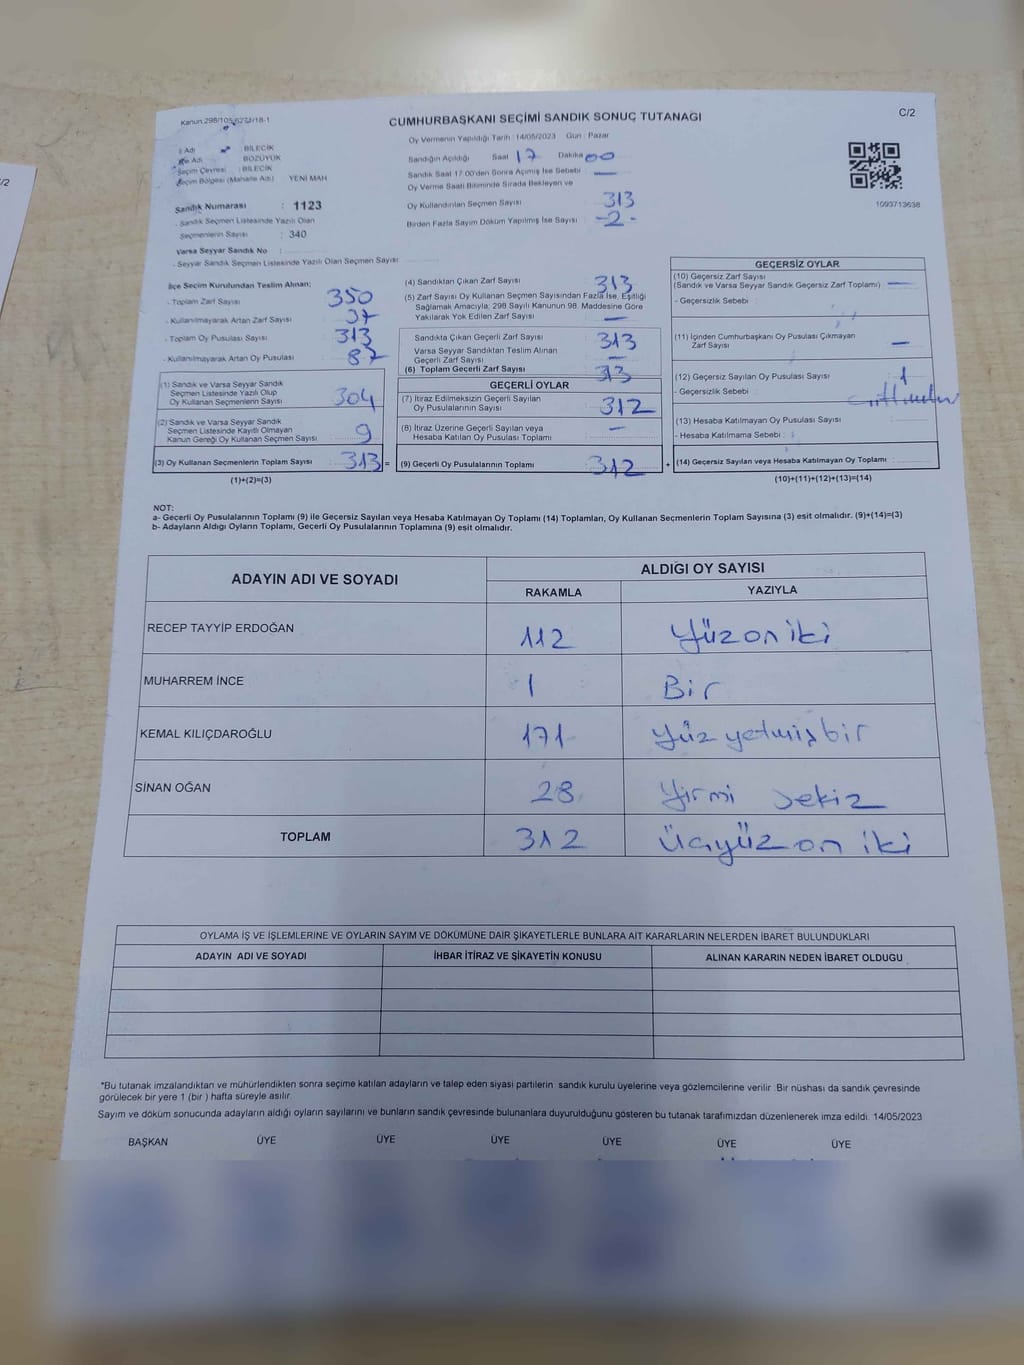 CUMHURBAŞKANI SEÇİMİ SANDIK SONUÇ TUTANAĞI
C/2
Oy Vermenin Yapıldığı Tarih : 14/05/2023 Gün : Pazar
İl Adı : BİLECİK
İlçe Adı : BOZÜYÜK
Seçim Çevresi : BİLECİK
Seçim Bölgesi (Mahalle Adı) YENİ MAH
Sandık Numarası : 1123
- Sandık Seçmen Listesinde Yazılı Olan
Seçmenlerin Sayısı : 340
Varsa Seyyar Sandık No :
- Seyyar Sandık Seçmen Listesinde Yazılı Olan Seçmen Sayısı
Sandığın Açıldığı Saat 17 Dakika 00
Sandık Saat 17:00'den Sonra Açımış İse Sebebi —
Oy Verme Saati Bitiminde Sırada Bekleyen ve
Oy Kullandırılan Seçmen Sayısı 313
Birden Fazla Sayım Döküm Yapılmış İse Sayısı -2-
1093713638
İlçe Seçim Kurulundan Teslim Alınan;
- Toplam Zarf Sayısı 350
- Kullanılmayarak Artan Zarf Sayısı 37
- Toplam Oy Pusulası Sayısı 313
- Kullanılmayarak Artan Oy Pusulası 87
(1) Sandık ve Varsa Seyyar Sandık
Seçmen Listesinde Yazılı Olup
Oy Kullanan Seçmenlerin Sayısı 304
(2) Sandık ve Varsa Seyyar Sandık
Seçmen Listesinde Kayıtlı Olmayan
Kanun Gereği Oy Kullanan Seçmen Sayısı 9
(3) Oy Kullanan Seçmenlerin Toplam Sayısı 313 =
(1)+(2)=(3)
(4) Sandıktan Çıkan Zarf Sayısı 313
(5) Zarf Sayısı Oy Kullanan Seçmen Sayısından Fazla İse, Eşitliği
Sağlamak Amacıyla, 298 Sayılı Kanunun 98. Maddesine Göre
Yakılarak Yok Edilen Zarf Sayısı —
Sandıkta Çıkan Geçerli Zarf Sayısı 313
Varsa Seyyar Sandıktan Teslim Alınan
Geçerli Zarf Sayısı —
(6) Toplam Geçerli Zarf Sayısı 313
GEÇERLİ OYLAR
(7) İtiraz Edilmeksizin Geçerli Sayılan
Oy Pusulalarının Sayısı 312
(8) İtiraz Üzerine Geçerli Sayılan veya
Hesaba Katılan Oy Pusulası Toplamı —
(9) Geçerli Oy Pusulalarının Toplamı 312 +
GEÇERSİZ OYLAR
(10) Geçersiz Zarf Sayısı
(Sandık ve Varsa Seyyar Sandık Geçersiz Zarf Toplamı) —
- Geçersizlik Sebebi :
(11) İçinden Cumhurbaşkanı Oy Pusulası Çıkmayan
Zarf Sayısı —
(12) Geçersiz Sayılan Oy Pusulası Sayısı 1
- Geçersizlik Sebebi :
(13) Hesaba Katılmayan Oy Pusulası Sayısı :
- Hesaba Katılmama Sebebi :
(14) Geçersiz Sayılan veya Hesaba Katılmayan Oy Toplamı :
(10)+(11)+(12)+(13)=(14)
NOT:
a- Geçerli Oy Pusulalarının Toplamı (9) ile Geçersiz Sayılan veya Hesaba Katılmayan Oy Toplamı (14) Toplamları, Oy Kullanan Seçmenlerin Toplam Sayısına (3) eşit olmalıdır. (9)+(14)=(3)
b- Adayların Aldığı Oyların Toplamı, Geçerli Oy Pusulalarının Toplamına (9) eşit olmalıdır.
ADAYIN ADI VE SOYADI
ALDIĞI OY SAYISI
RAKAMLA YAZIYLA
RECEP TAYYİP ERDOĞAN 112 Yüzoniki
MUHARREM İNCE 1 Bir
KEMAL KILIÇDAROĞLU 171 Yüz yetmiş bir
SİNAN OĞAN 28 Yirmi sekiz
TOPLAM 312 Üçyüz on iki
OYLAMA İŞ VE İŞLEMLERİNE VE OYLARIN SAYIM VE DÖKÜMÜNE DAİR ŞİKAYETLERLE BUNLARA AİT KARARLARIN NELERDEN İBARET BULUNDUKLARI
ADAYIN ADI VE SOYADI İHBAR İTİRAZ VE ŞİKAYETİN KONUSU ALINAN KARARIN NEDEN İBARET OLDUĞU
*Bu tutanak imzalandıktan ve mühürlendikten sonra seçime katılan adayların ve talep eden siyasi partilerin sandık kurulu üyelerine veya gözlemcilerine verilir. Bir nüshası da sandık çevresinde
görülecek bir yere 1 (bir ) hafta süreyle asılır.
Sayım ve döküm sonucunda adayların aldığı oyların sayılarını ve bunların sandık çevresinde bulunanlara duyurulduğunu gösteren bu tutanak tarafımızdan düzenlenerek imza edildi. 14/05/2023
BAŞKAN ÜYE ÜYE ÜYE ÜYE ÜYE ÜYE